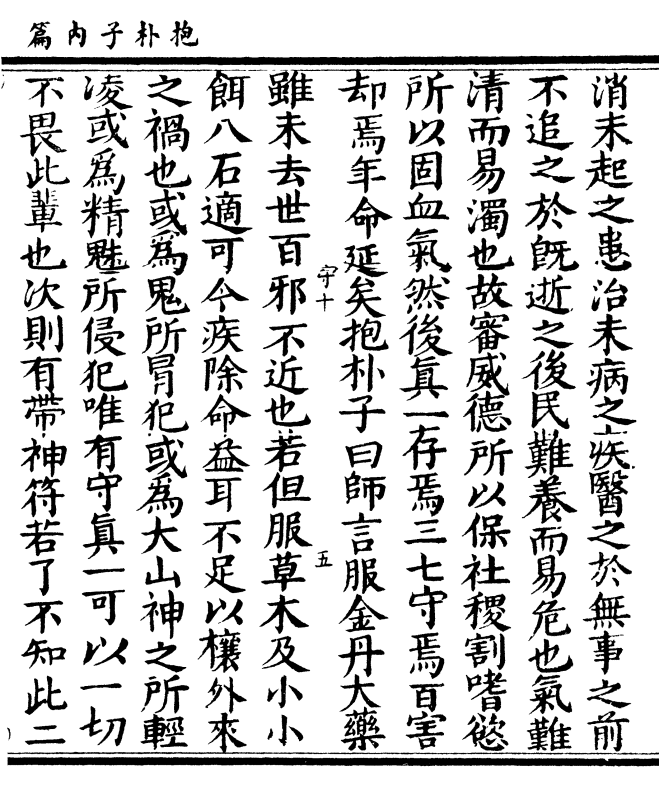 抱朴子內篇
消未起之患治未病之疾醫之於無事之前
不追之於旣逝之後民難養而易危也氣難
清而易濁也故審威德所以保社稷割嗜慾
所以固血氣然後眞一存焉三七守焉百害
却焉年命延矣抱朴子曰師言服金丹大藥
雖未去世百邪不近也若但服草木及小小
餌八石適可令疾除命益耳不足以欀外來
之禍也或爲鬼所冐犯或爲大山神之所輕
凌或爲精魅所侵犯唯有守眞一可以一切
不畏此輩也次則有帶神符若了不知此二
守十
五